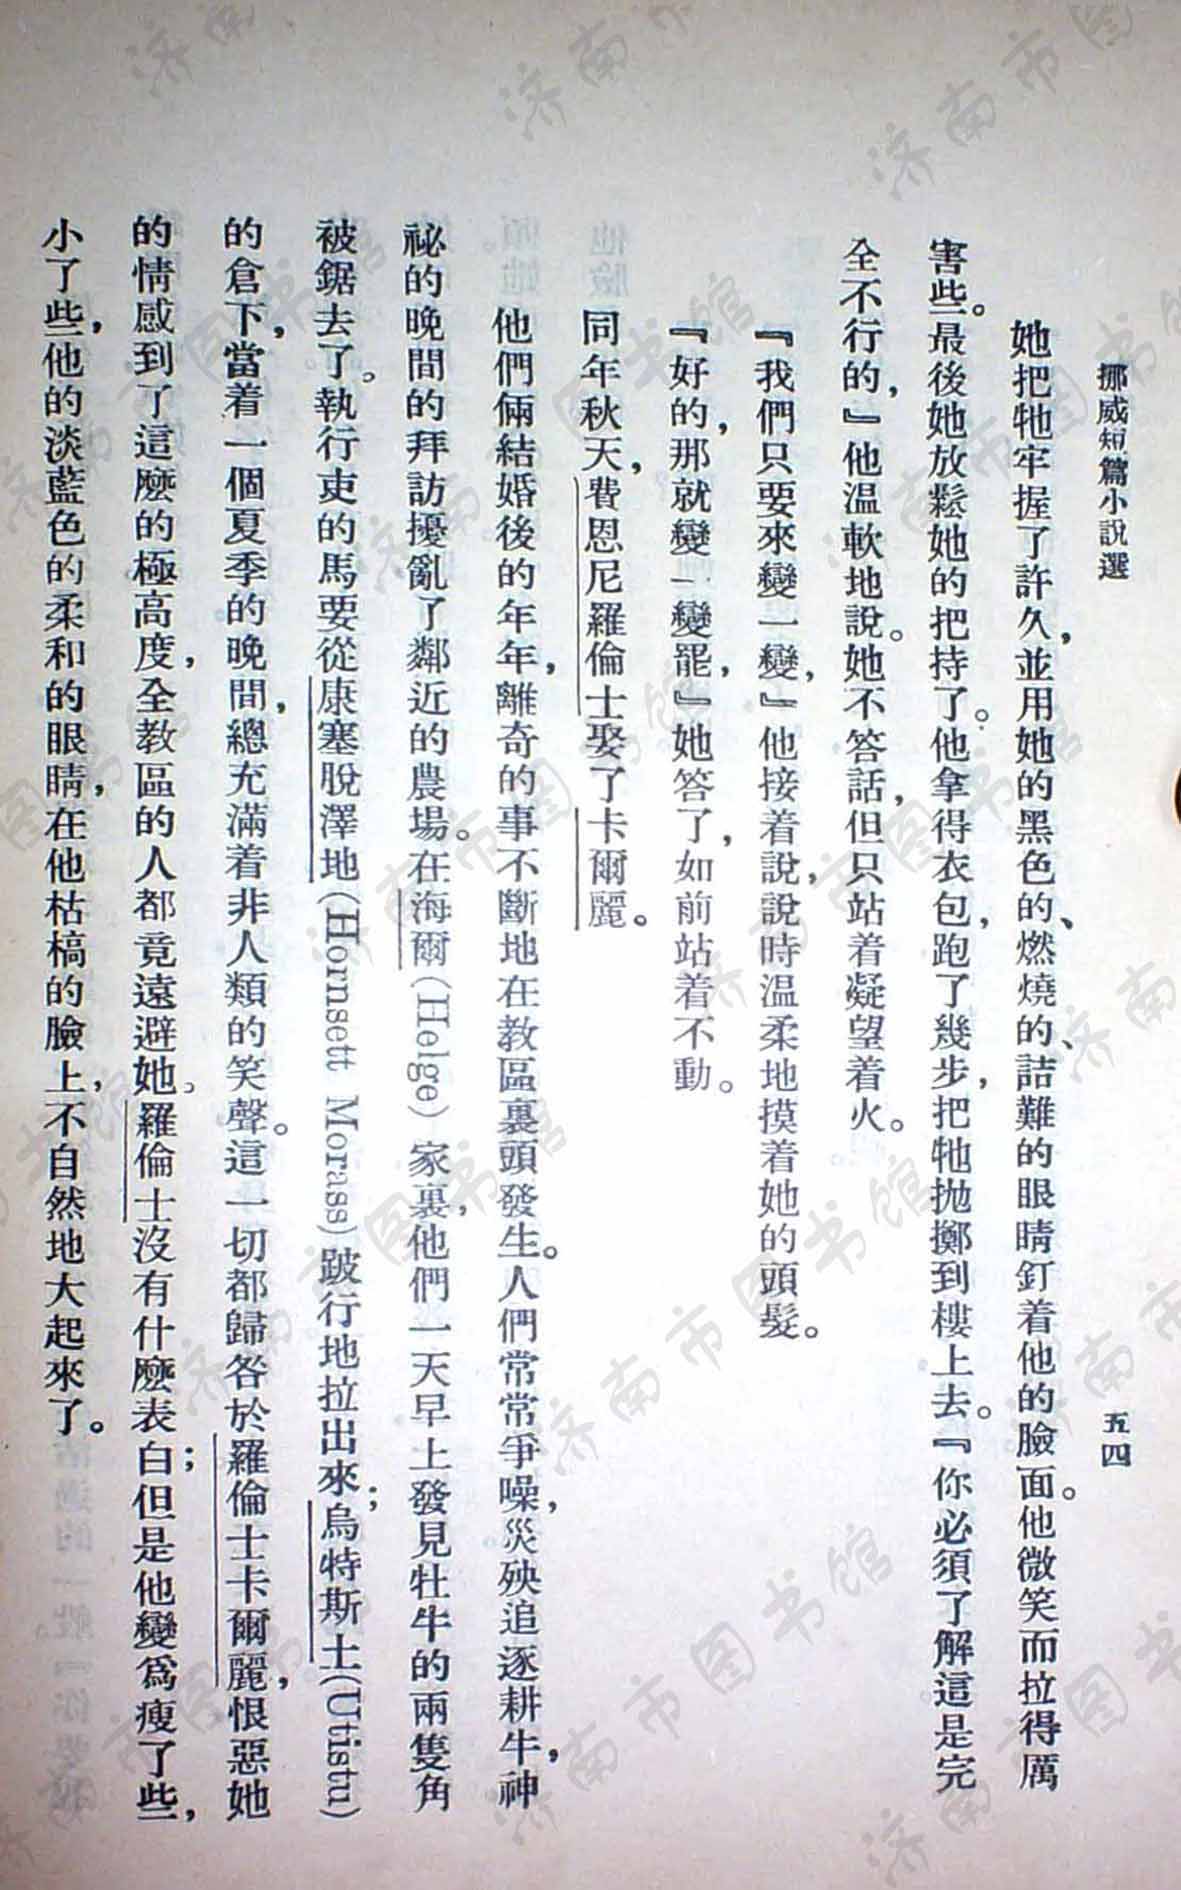 挪威短篇小說選
五四
她把牠牢握了許久，並用她的黑色的、燃燒的、詰難的眼睛釘着他的臉面。他微笑而拉得厲
害些。最後她放鬆她的把持了。他拿得衣包，跑了幾步，把牠拋擲到樓上去。『你必須了解這是完
全不行的，』他温軟地說。她不答話，但只站着凝望着火。
『我們只要來變一變，』他接着說，說時温柔地摸着她的頭髮。
『好的，那就變一變罷，』她答了，如前站着不動。
同年秋天，費恩尼羅倫士娶了卡爾麗。
他們倆結婚後的年年，離奇的事不斷地在教區裏頭發生。人們常常爭噪，災殃追逐耕牛，神
祕的晚間的拜訪擾亂了鄰近的農場。在海爾(Helge)家裏，他們一天早上發見牡牛的兩隻角
被鋸去了。執行吏的馬要從康塞脫澤地(Hornsett Morass)跛行地拉出來；烏特斯土(Utistu)
的倉下，當着一個夏季的晚間，總充滿着非人類的笑聲。這一切都歸咎於羅倫士卡爾麗，恨惡她
的情感到了這麼的極高度，全教區的人都竟遠避她。羅倫士沒有什麼表白；但是他變爲瘦了些，
小了些，他的淡藍色的柔和的眼睛，在他枯槁的臉上，不自然地大起來了。
济南市图书馆